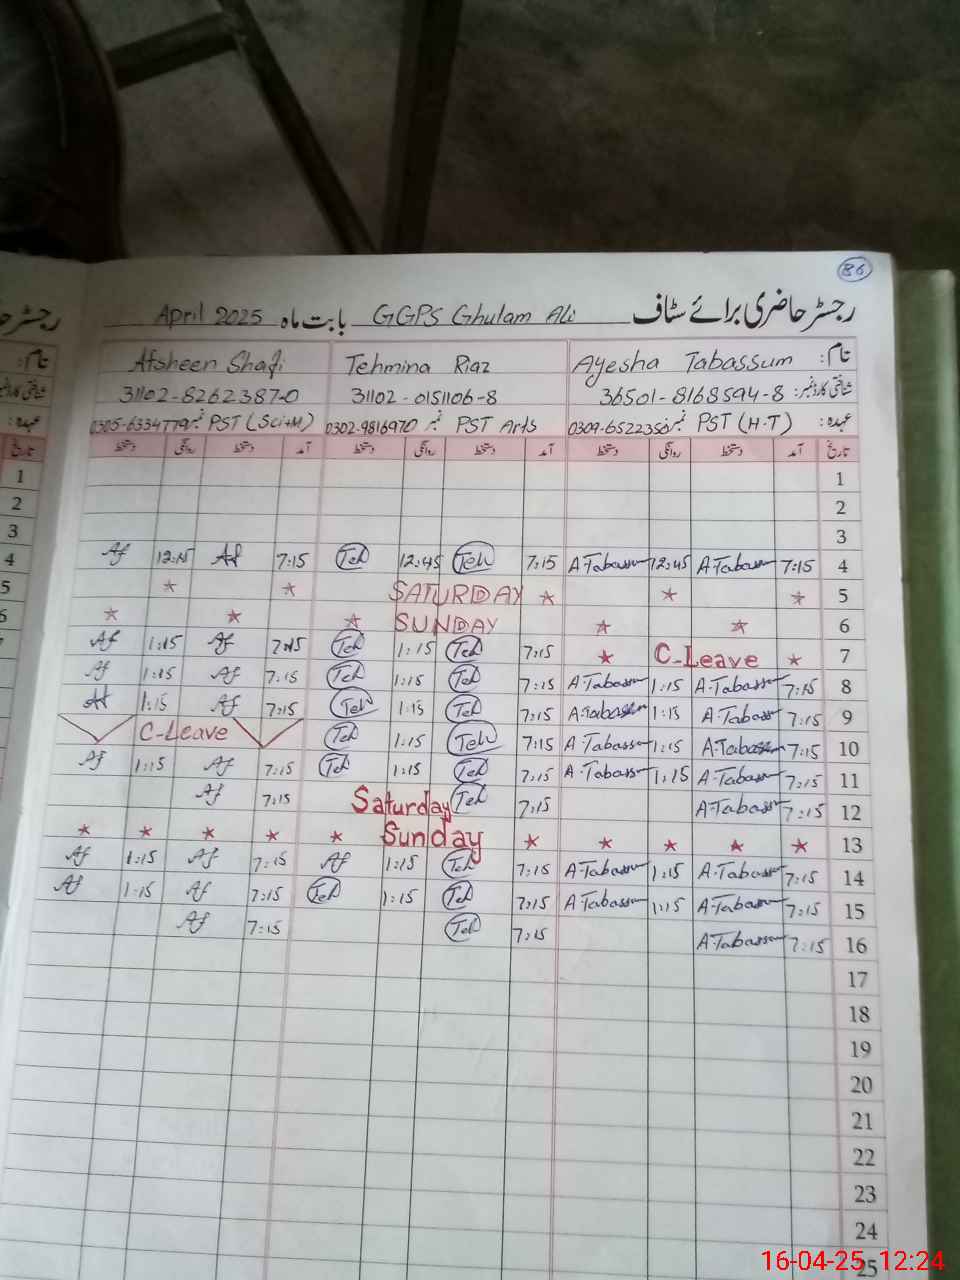 86
رجسٹر حاضری برائے سٹاف GGPS Ghulam Ali بابت ماہ April 2025
نام: Ayesha Tabassum Tehmina Riaz Afsheen Shafi
شناختی کارڈ نمبر: 36501-8168594-8 31102-0151106-8 31102-8262387-0
عہدہ: PST (H.T) نمبر 0309-6522350 PST Arts نمبر 0302-9816970 PST (Sci+M) نمبر 0305-6334779
تاریخ آمد دستخط روانگی دستخط آمد دستخط روانگی دستخط آمد دستخط روانگی دستخط
1
2
3
Af 12:15 Af 7:15 Teh 12:45 Teh 7:15 A.Tabassum 12:45 A.Tabassum 7:15 4
* * SATURDAY * * * 5
* * * SUNDAY * * 6
Af 1:15 Af 7:15 Teh 1:15 Teh 7:15 * C-Leave * 7
Af 1:15 Af 7:15 Teh 1:15 Teh 7:15 A.Tabassum 1:15 A.Tabassum 7:15 8
Af 1:15 Af 7:15 Teh 1:15 Teh 7:15 A.Tabassum 1:15 A.Tabassum 7:15 9
C-Leave Teh 1:15 Teh 7:15 A.Tabassum 1:15 A.Tabassum 7:15 10
Af 1:15 Af 7:15 Teh 1:15 Teh 7:15 A.Tabassum 1:15 A.Tabassum 7:15 11
Af 7:15 Saturday Teh 7:15 A.Tabassum 7:15 12
* * * * * Sunday * * * * * 13
Af 1:15 Af 7:15 Af 1:15 Teh 7:15 A.Tabassum 1:15 A.Tabassum 7:15 14
Af 1:15 Af 7:15 Teh 1:15 Teh 7:15 A.Tabassum 1:15 A.Tabassum 7:15 15
Af 7:15 Teh 7:15 A.Tabassum 7:15 16
17
18
19
20
21
22
23
24
25
16-04-25 12:24